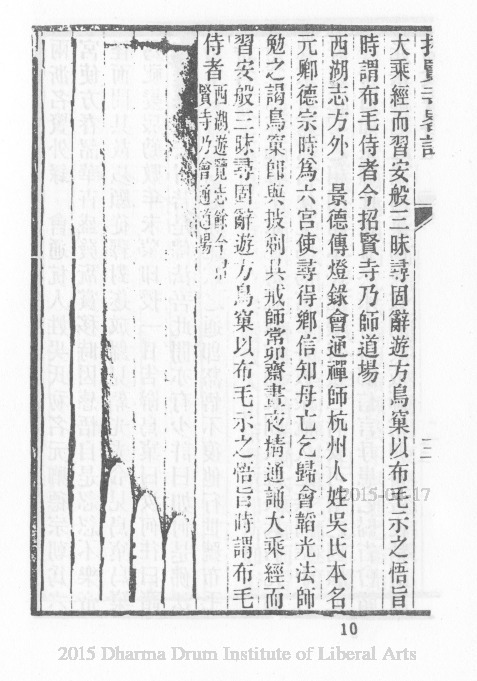 招賢寺畧記
大乘經而習安般三昧尋固辭遊方鳥窠以布毛示之悟旨
時謂布毛侍者今招賢寺乃師道場
西湖志方外　景德傳燈錄會通禪師杭州人姓吳氏本名
元卿德宗時爲六宮使尋得鄉信知母亡乞歸會韜光法師
勉之謁鳥窠郎與披剃具戒師常卯齋晝夜精通誦大乘經而
習安般三昧尋固辭遊方鳥窠以布毛示之悟旨時謂布毛
侍者
西湖遊覽志餘今
賢寺乃會通道場
10
2015 Dharma Drum Institute of Liberal Arts